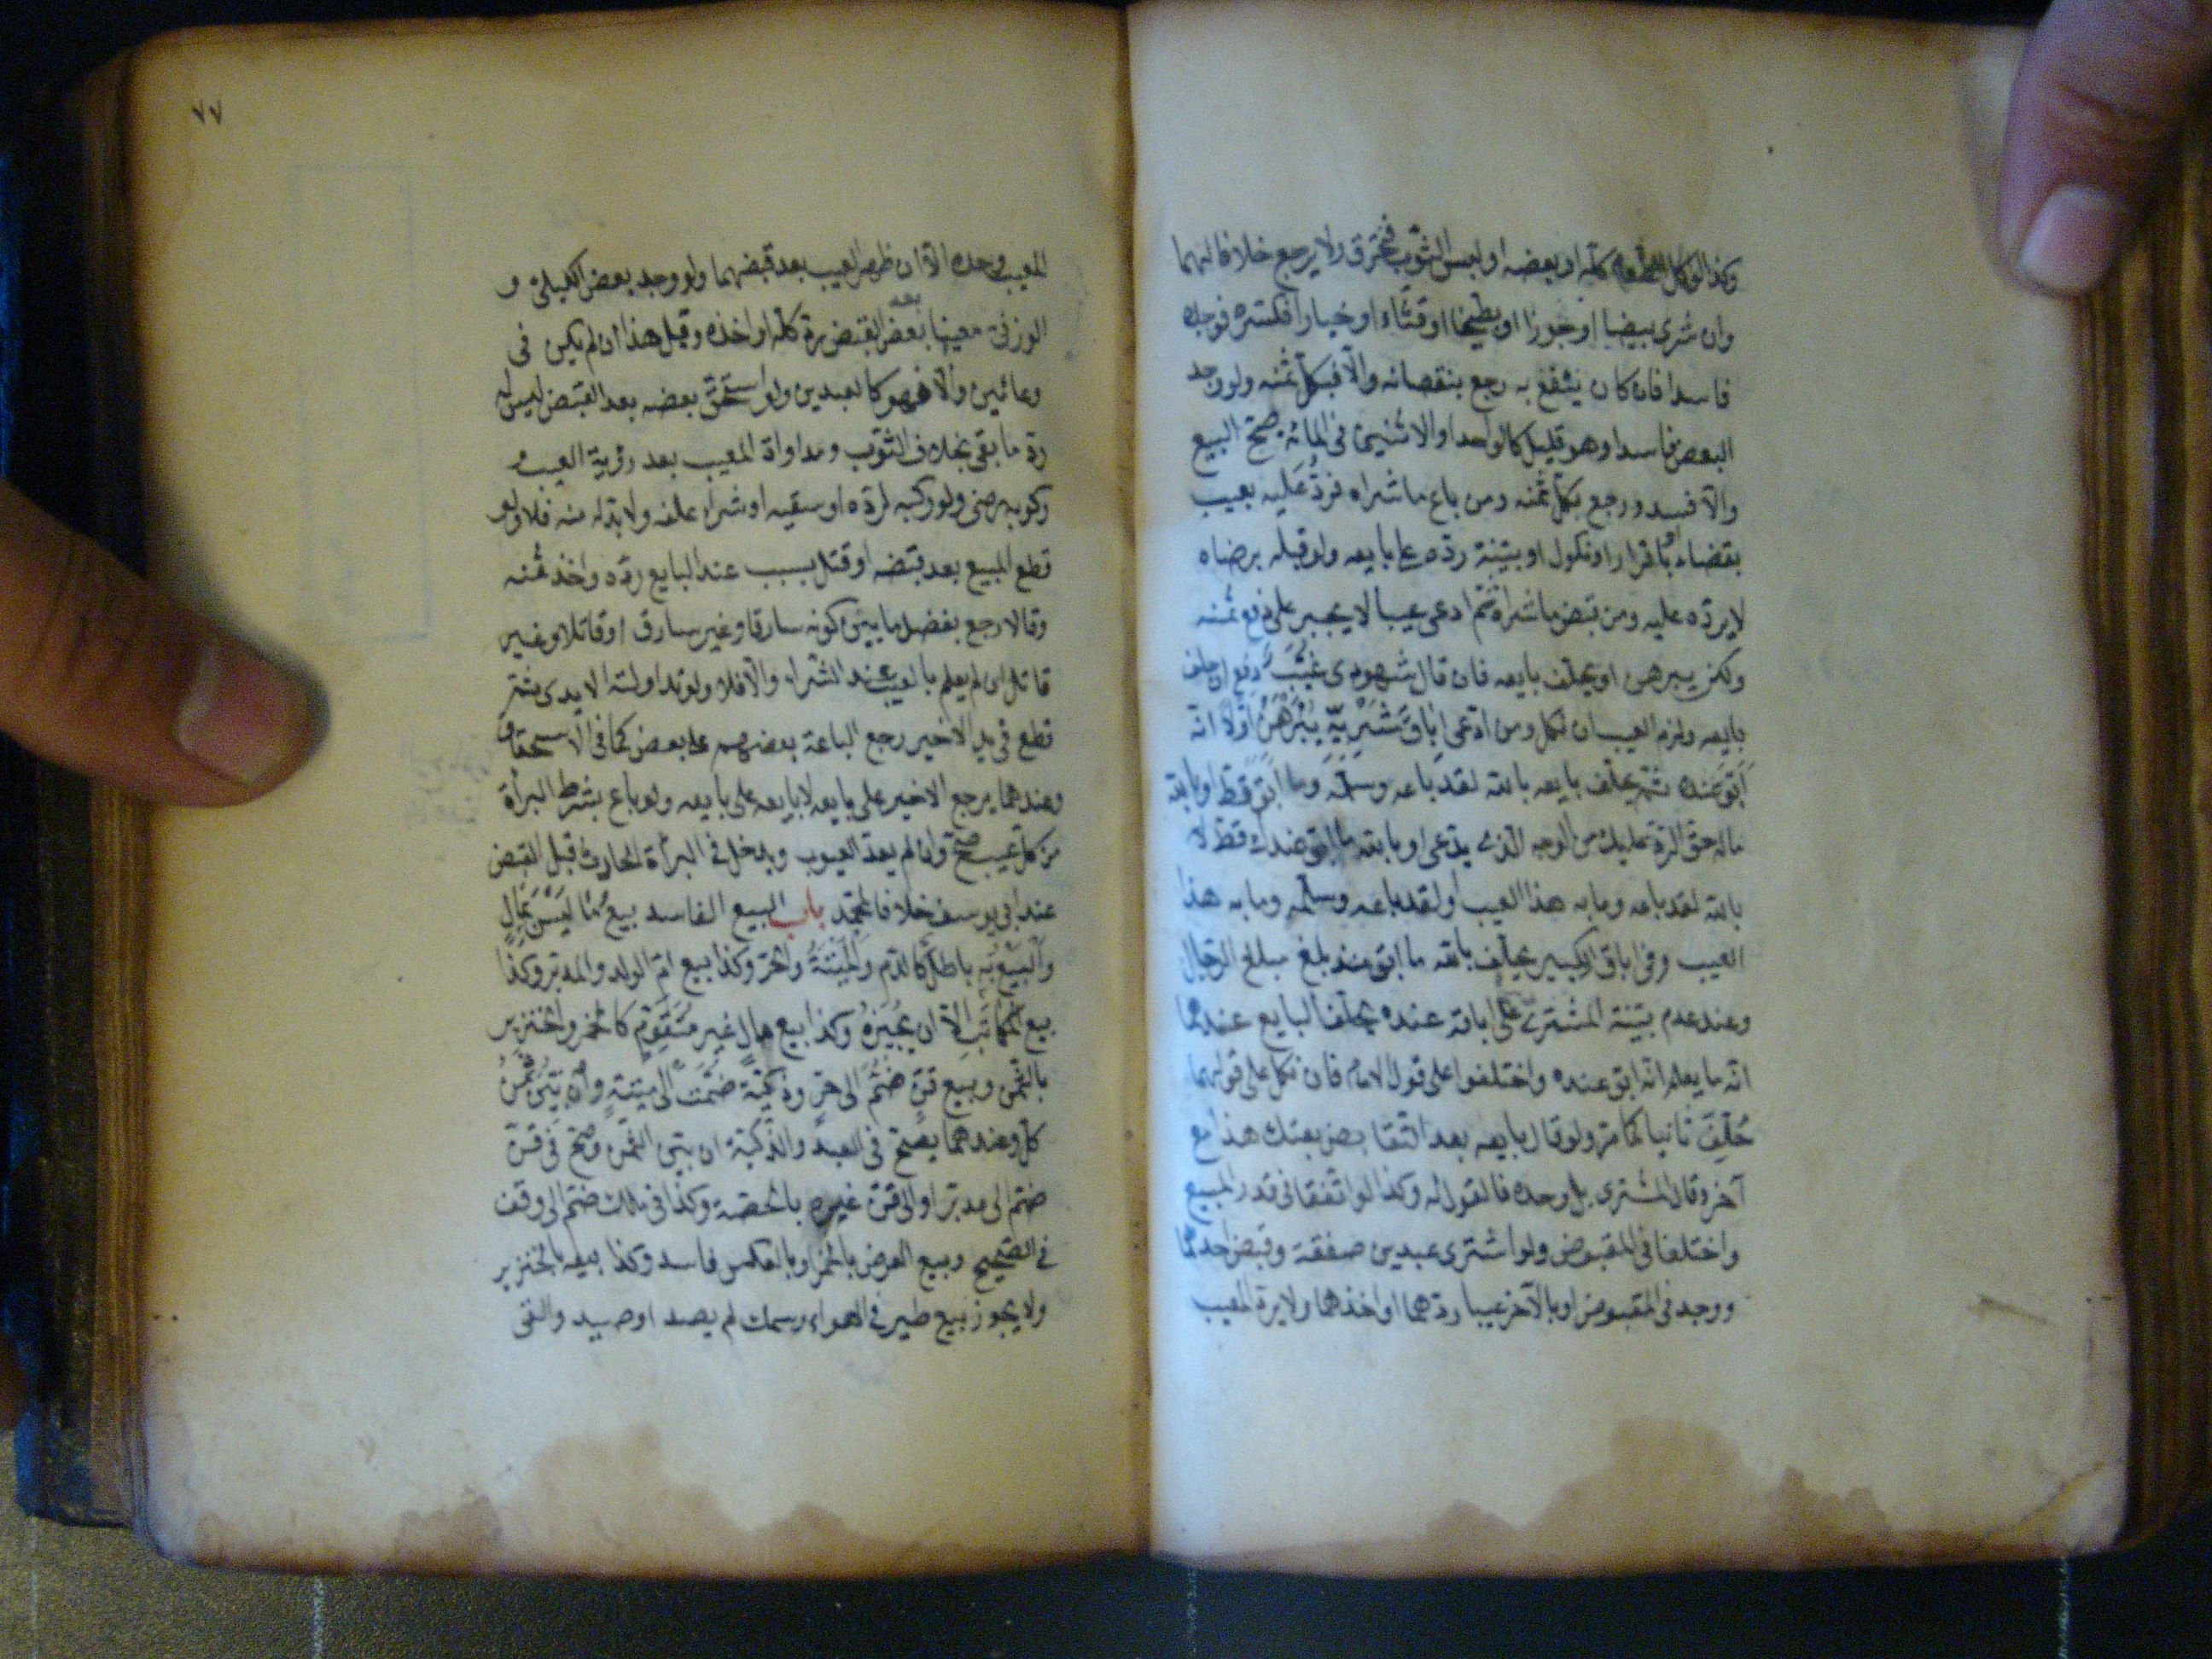 وكذا لو اكل الطعام كله او بعضه او لبس الثوب فتخرق ولا يرجع خلافا لهما
وان شرى بيضا او جوزا او بطيخا او قثاء او خيارا فكسره فوجده
فاسدا فان كان ينتفع به رجع بنقصانه والا فبكل ثمنه ولو وجد
البعض فاسدا وهو قليل كالواحد والاثنين في المائة صح البيع
والا فسد ورجع بكل ثمنه ومن باع ما شراه فرد عليه بعيب
بقضاء باقرار او نكول او ببينة رده على بايعه ولو قبله برضاه
لا يرده عليه ومن قبض ما شراه ثم ادعى عيبا لا يجبر على دفع ثمنه
ولكن يبرهن او يحلف بايعه فان قال شهودي غيب دفع ان حلف
بايعه ولزم العيب ان نكل ومن ادعى اباق مشريه يبرهن اولا انه
ابق عنده ثم يحلف بايعه بالله لقد باعه وسلمه وما ابق قط او بالله
ماله حق الرد عليك من الوجه الذي يدعي او بالله ما ابق عندك قط لا
بالله لقد باعه وما به هذا العيب او لقد باعه وسلمه وما به هذا
العيب وفي اباق الكبير يحلف بالله ما ابق منذ بلغ مبلغ الرجال
وعند عدم بينة المشتري على اباقه عنده يحلف البايع عندهما
انه ما يعلم انه ابق عنده واختلفوا على قول الامام فان نكل على قولهما
حلف ثانيا كما مر ولو قال بايعه بعد التقابض بعتك هذا مع
آخر وقال المشتري بل وحده فالقول له وكذا لو اتفقا في قدر المبيع
واختلفا في المقبوض ولو اشترى عبدين صفقة وقبض احدهما
ووجد في المقبوض او بالآخر عيبا ردهما او اخذهما ولا يرد المعيب
٧٧
المعيب وحده الا ان ظهر العيب بعد قبضهما ولو وجد بعض الكيلي و
الوزني معيبا بعد القبض رد كله او اخذه وقيل هذا ان لم يكن في
وعائين والا فهو كالعبدين ولو استحق بعضه بعد القبض ليس له
رد ما بقي بخلاف الثوب ومداواة المعيب بعد رؤية العيب و
ركوبه رضى ولو ركبه لرده او سقيه او شراء علفه ولا بد له منه فلا ولو
قطع المبيع بعد قبضه او قتل بسبب عند البايع رده واخذ ثمنه
وقالا رجع بفضل ما بين كونه سارقا وغير سارق او قاتلا وغير
قاتل ان لم يعلم بالعيب عند الشراء والا فلا ولو تداولته الايدي ثم
قطع في يد الاخير رجع الباعة بعضهم على بعض كما في الاستحقاق
وعندهما يرجع الاخير على بايعه لا بايعه على بايعه ولو باع بشرط البراءة
من كل عيب صح وان لم يعد العيوب ويدخل في البراءة الحادث قبل القبض
عند ابي يوسف خلافا لمحمد باب البيع الفاسد بيع ما ليس بمال
والبيع به باطل كالدم والميتة والحر وكذا بيع ام الولد والمدبر وكذا
بيع المكاتب الا ان يجيزه وكذا بيع مال غير متقوم كالخمر والخنزير
بالثمن وبيع قن ضم الى حر وذكية ضمت الى ميتة وان بين ثمن
كل وعندهما يصح في العبد والذكية ان بين الثمن وصح في قن
ضم الى مدبر او الى قن غيره بالحصة وكذا في ملك ضم الى وقف
في الصحيح وبيع العرض بالخمر او بالعكس فاسد وكذا بيعه بالخنزير
ولا يجوز بيع طير في الهواء وسمك لم يصد او صيد والقي